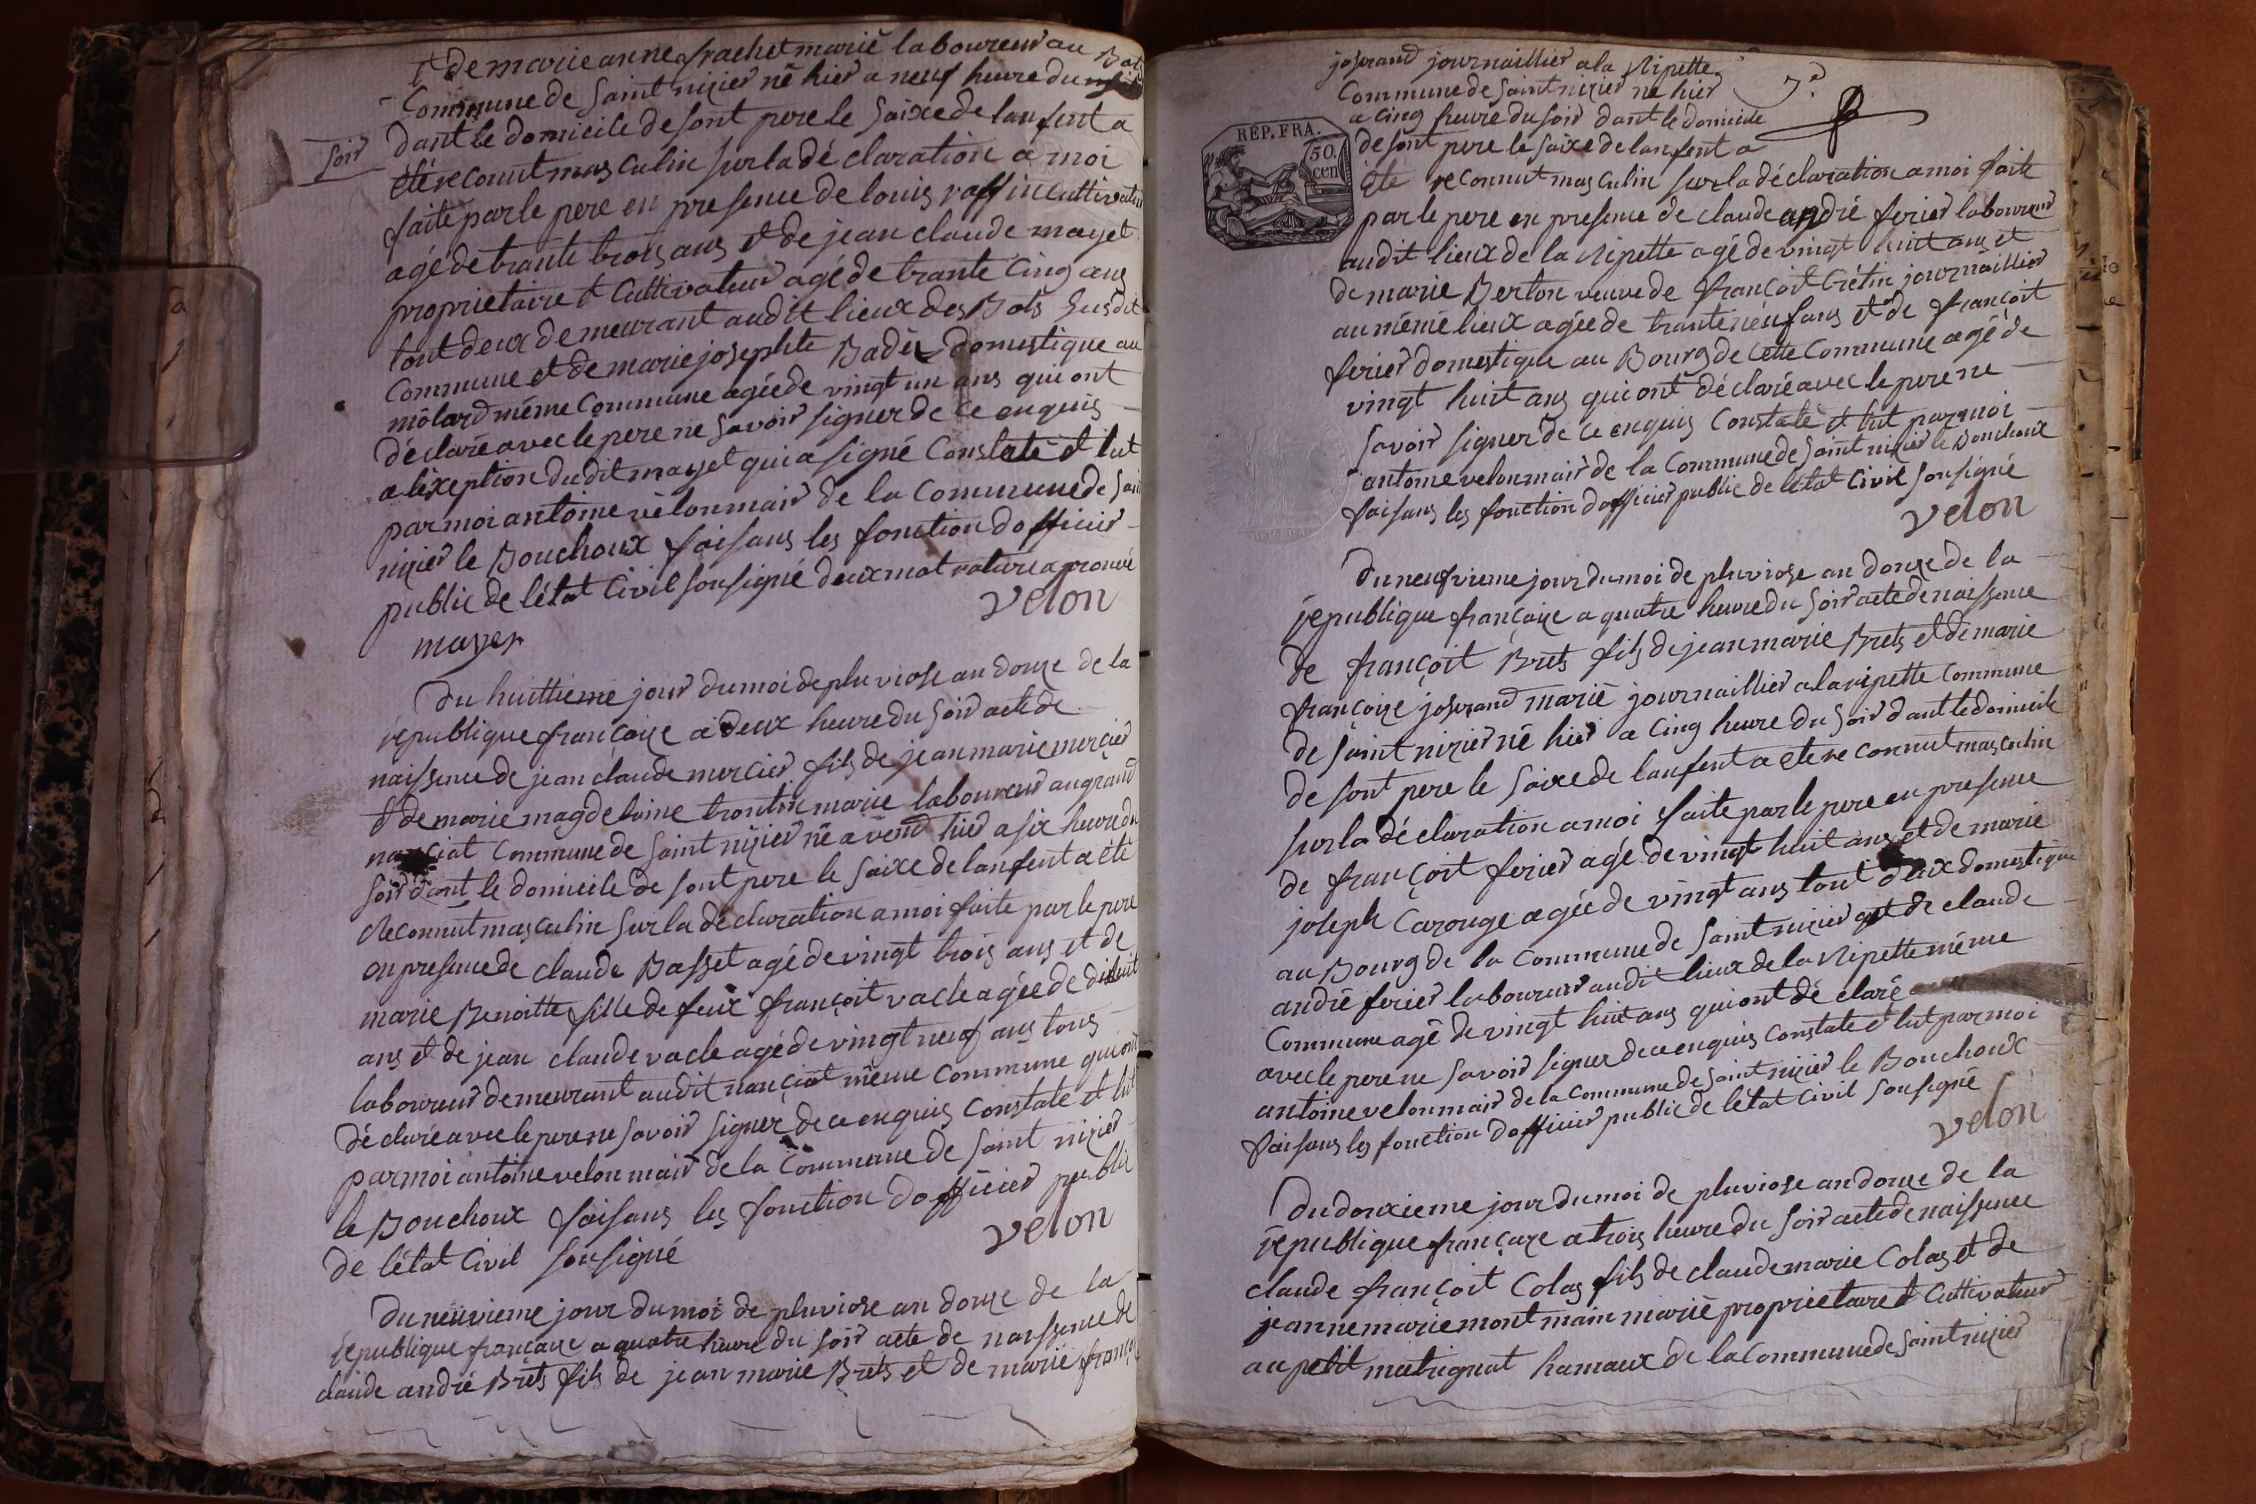 et de marie anne frachet marié laboureur au Bols
Commune de Saint nizier né hier a neuf heure du
soir
dant le domicile de sont pere le Saixe de lanfent a
été reconnut masculin sur la dé claration a moi
faite par le pere en presence de louis raffin cultivateur
agé de trante trois ans et de jean claude mayet
proprietaire et Cultivateur agé de trante cinq ans
tout deux demeurant audit lieux des Bols susdit
Commune et de marie josephte Badez domestique au
môlard même Commune agée de vingt un ans qui ont
déclaré avec le pere ne savoir signer de ce enquis
a lexeption dudit mayet qui a signé Constaté et lut
par moi antoine vélon mair de la Commune de sain
nizier le Bouchoux faisans les fonction dofficier
public de létat Civil sousigné deux mot rature aprouvé
velon
mayer
Du huittieme jour du moi de pluviose an douze de la
république françaize a deux heure du soir acte de
naissence de jean claude mercier fils de jean marie mercier
et de marie magdelaine trontin marié laboureur au grand
nanciat Commune de Saint nizier né avend hier a six heure du
soir dant le domicile de sont pere le saixe de lanfent a été
Reconnut masculin sur la dé claration a moi faite par le pere
en presence de claude Basset agé de vingt trois ans et de
marie Benoitte fille de feux françoit vacle agée de dixhuit
ans et de jean claude vacle agé de vingt neuf ans tous
laboureur demeurant audit nanciat même Commune qui ont
dé claré avec le pere ne savoir signer de ce enquis Constaté et lut
par moi antoine velon mair de la Commune de saint nizier
le Bouchoux faisans les fonction dofficier public
de létat Civil sousigné
velon
Du neuvieme jour du moi de pluviose an douze de la
république françaize a quatre heure du soir acte de naissence de
claude andré Brets fils de jean marie Brets et de marie françoize
joserand journaillier a la Ripette
7.e
Commune de Saint nizier né hier
a cinq heure du soir dant le domicile
REP. FRA.
50.
cen
de sont pere le saixe de lanfent a
été reconnut masculin sur la dé claration a moi faite
par le pere en presence de claude andré ferier laboureur
audit lieux de la Ripette agé de vingt huit ans et
de marie Berton veuve de françoit Crétin journaillier
au même lieux agée de trante neuf ans et de françoit
ferier domestique au Bourg de cette Commune agé de
vingt huit ans qui ont dé claré avec le pere ne
savoir signer de ce enquis Constaté et lut par moi
antoine velon mair de la Commune de Saint nizier le Bouchoux
faisans les fonction dofficier public de létat Civil sousigné
velon
Du neufvieme jour du moi de pluviose an douze de la
république françaize a quatre heure du soir acte de naissence
de françoit Brets fils de jean marie Brets et de marie
françoize joserand marié journaillier a la ripette Commune
de saint nizier né hier a cinq heure du soir dant le domicile
de sont pere le saixe de lanfent a été reconnut masculin
sur la dé claration a moi faite par le pere en presence
de françoit ferier agé de vingt huit ans et de marie
joseph Carouge agée de vingt ans tout deux domestique
au Bourg de la Commune de Saint nizier et de claude
andré ferier laboureur audit lieux de la Ripette même
Commune agé de vingt huit ans qui ont dé claré
avec le pere ne savoir signer de ce enquis Constaté et lut par moi
antoine velon mair de la Commune de saint nizier le Bouchoux
faisans les fonction dofficier public de létat Civil sousigné
velon
Du douxieme jour du moi de pluviose an douze de la
république françaize a trois heure du soir acte de naissence
claude françoit Colas fils de claude marie Colas et de
jeanne marie montmain marié proprietaire et Cultivateur
au petit matrignat hamaux de la Commune de saint nizier